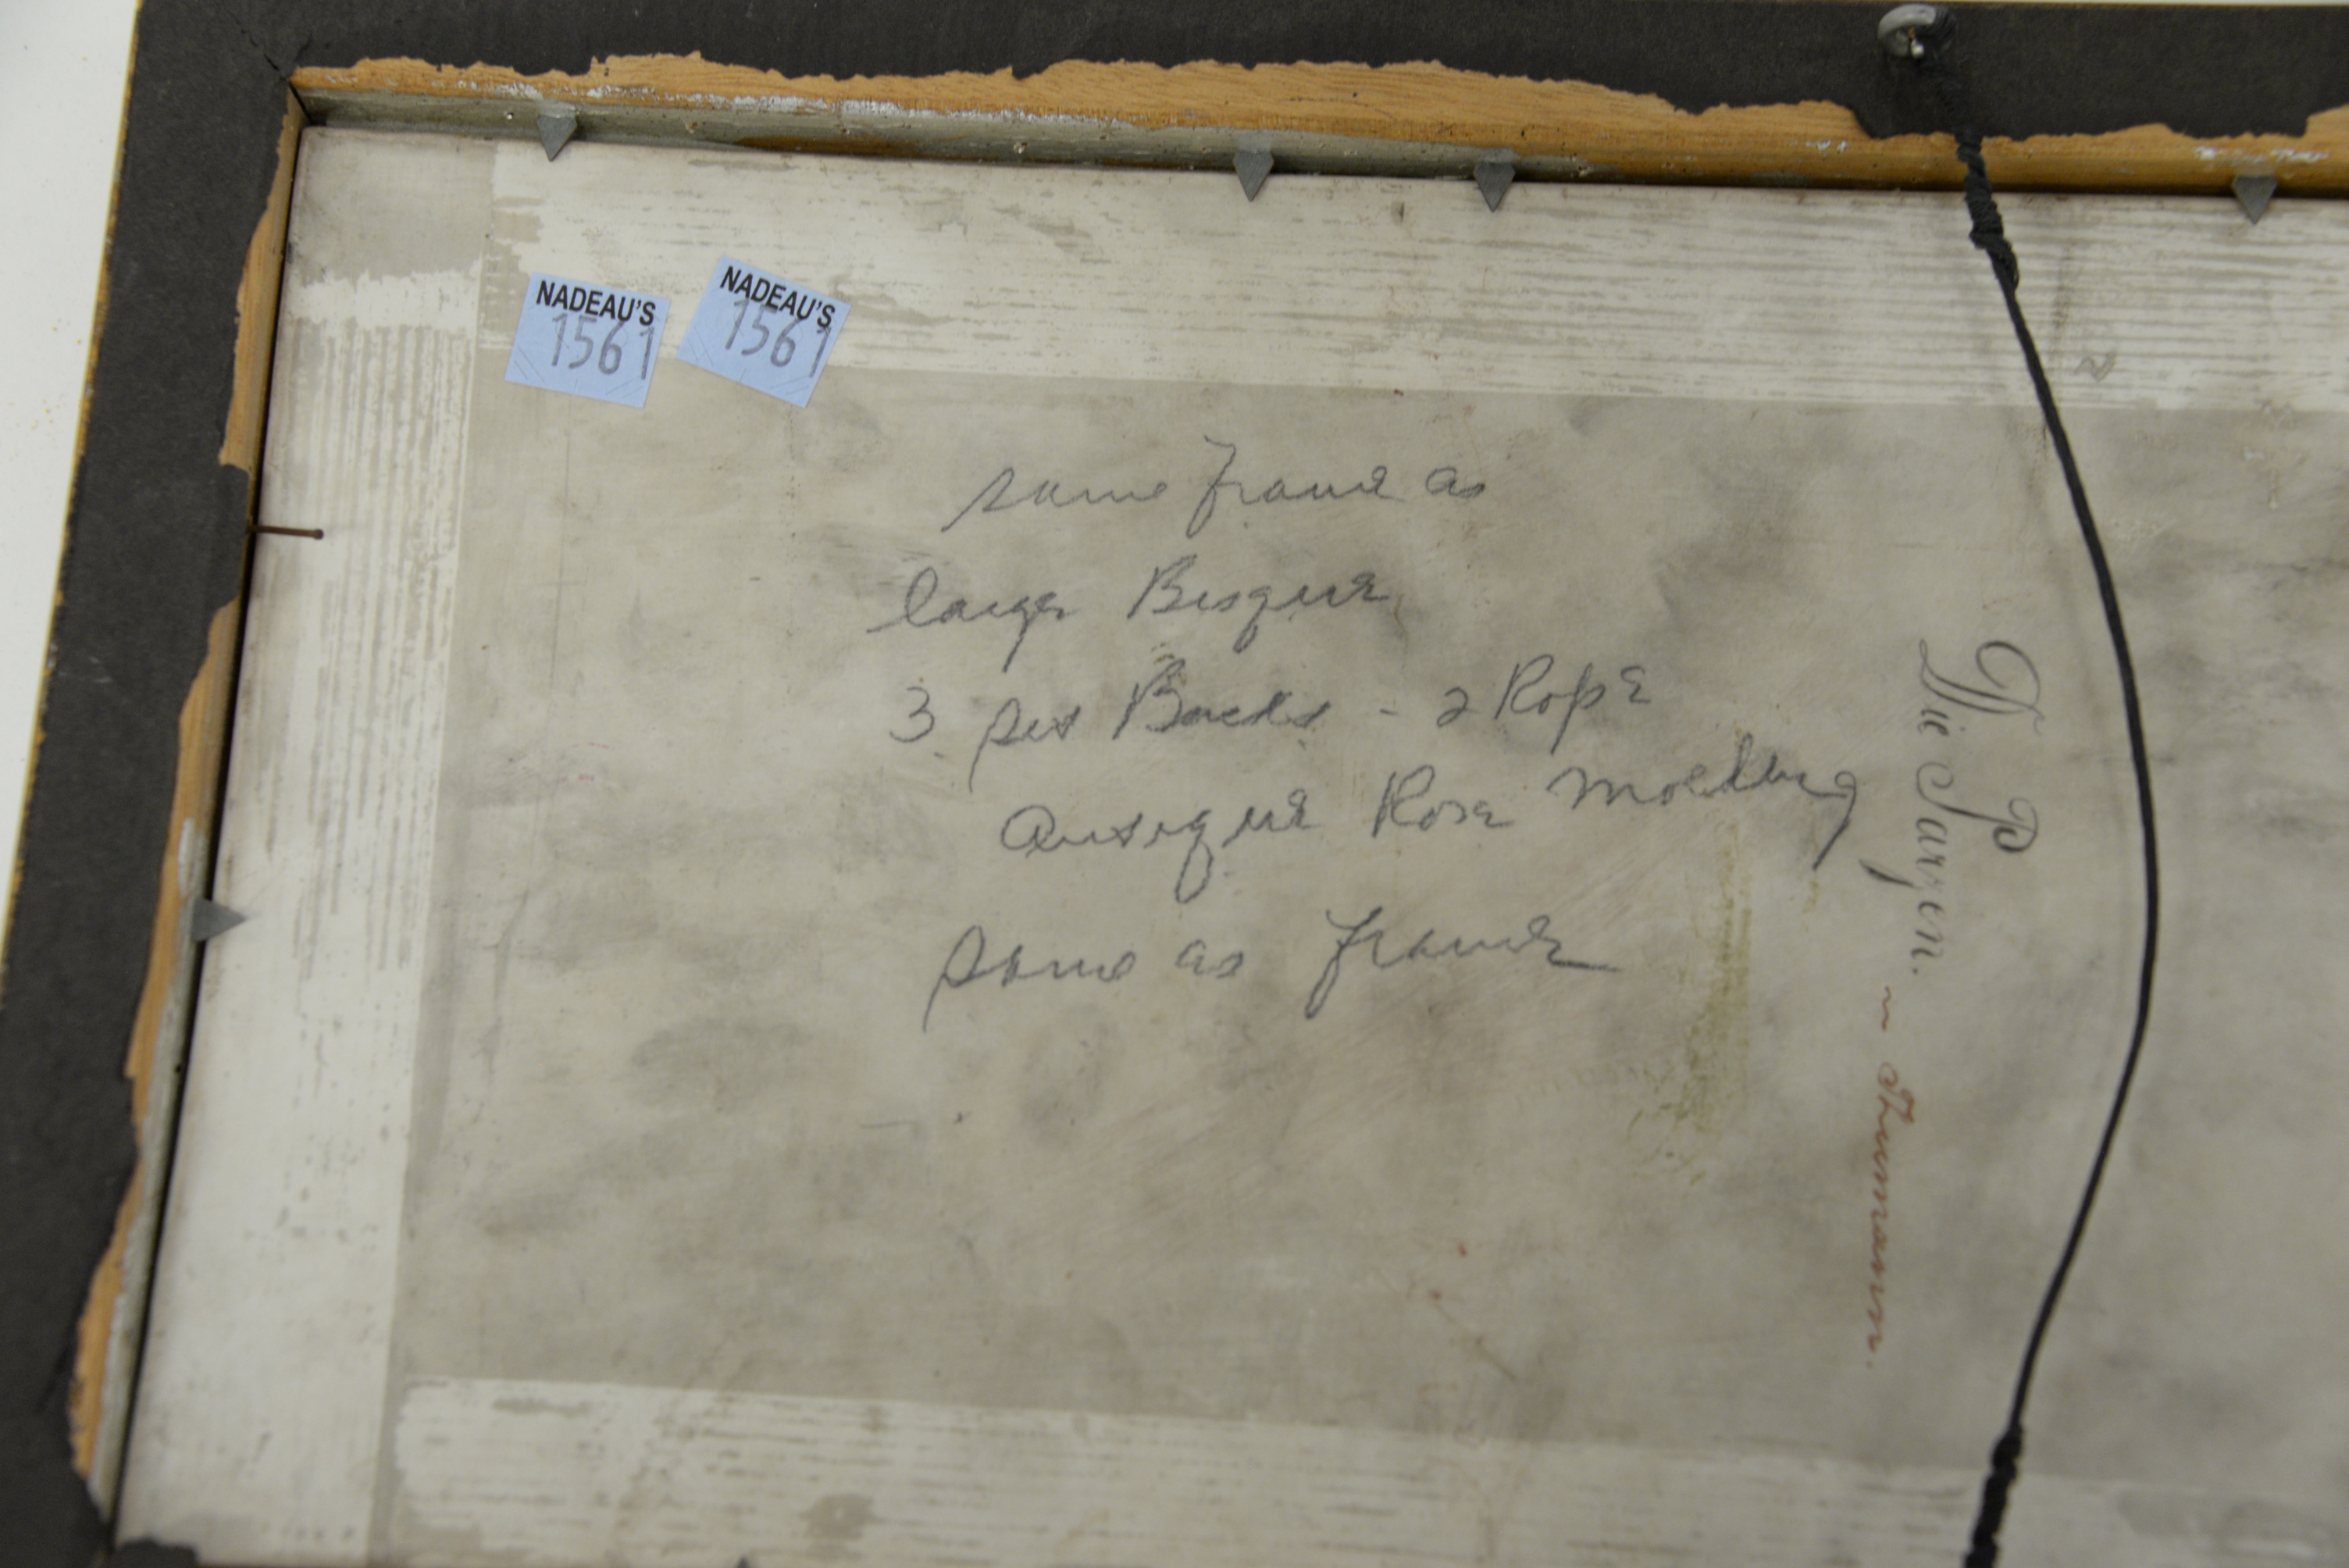 NADEAU'S
1561
NADEAU'S
1561
same frame as
large Bisque
3 pcs Backs - 2 Rope
Antique Rose Molding
same as frame
Die Parzen.
~ Thumann.